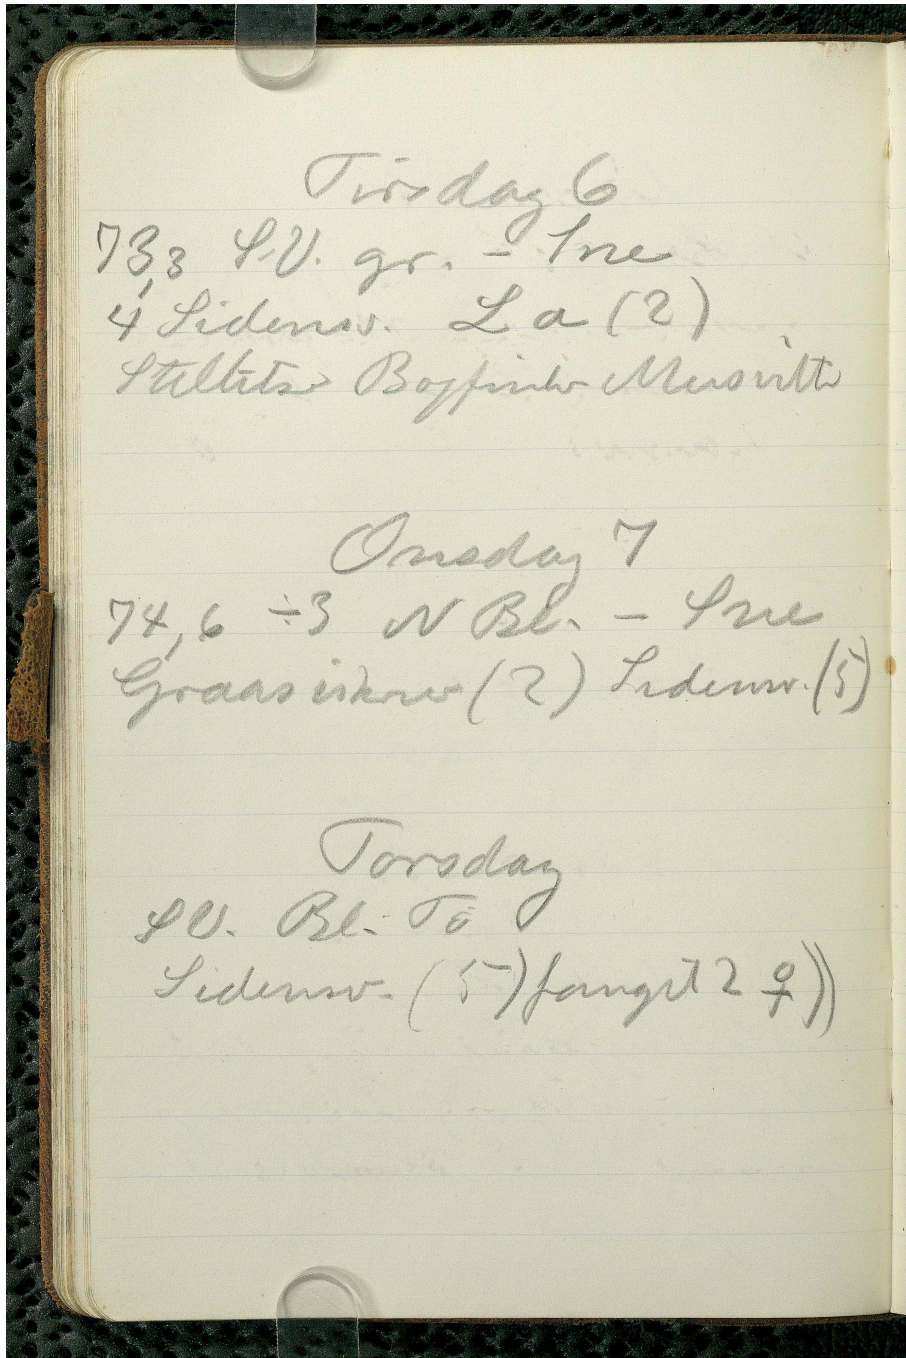 Tirsdag 6
73,3 S.V. gr. - Sne
4 Sidensv. L a (2)
Stillitse Bogfinke Musvitte
Onsdag 7
74,6 ÷3 N Bl. - Sne
Graasiskener (2) Sidensv. (5)
Torsdag
SV. Bl. Tö
Sidensv. (5) fanget 2 ♀))